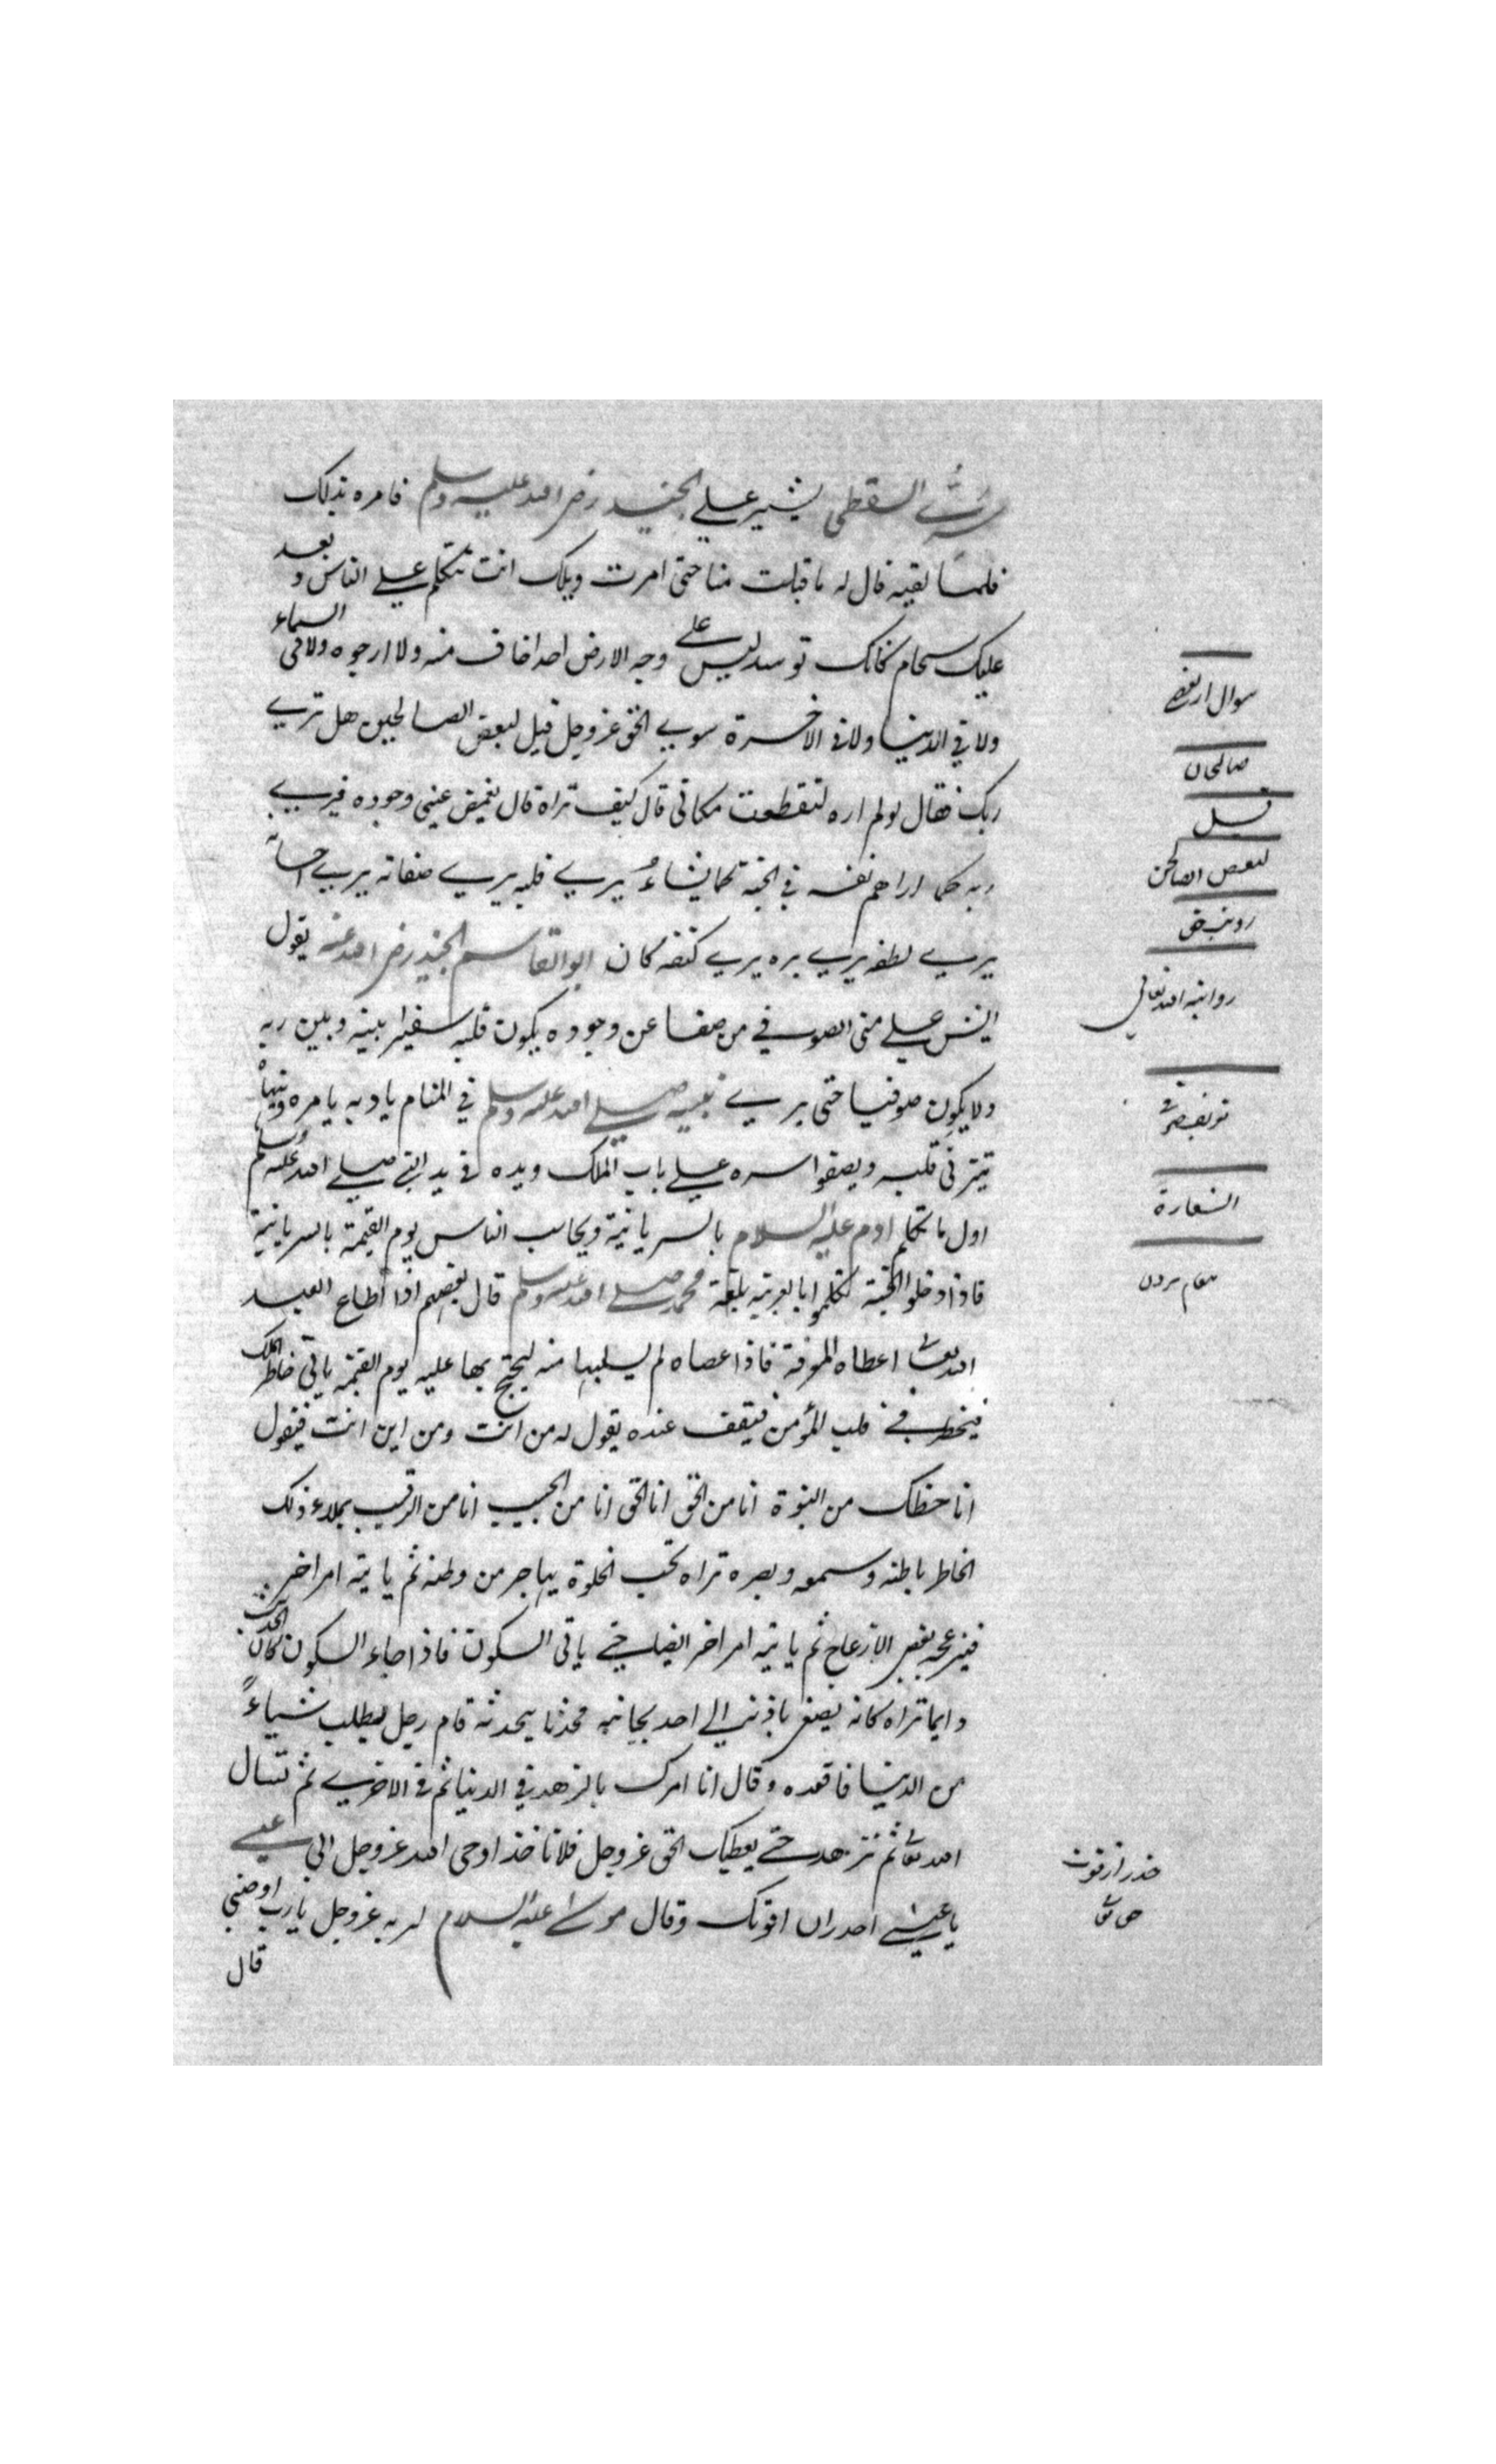 سرى السقطى يشير على الجنيد رضى الله عليه وسلم فامره بذلك
فلما لقيه قال له ما قبلت منا حتى امرت ويلك انت تتكلم على الناس و بعد
عليك سحام كانك توسد ليس على وجه الارض احد اخاف منه ولا ارجوه ولا فى السماء
ولا فى الدنيا ولا فى الاخرة سوى الحق عز وجل قيل لبعض الصالحين هل ترى
ربك فقال لو لم اره لتقطعت مكانى قال كيف تراه قال يغمض عينى وجوده فيرى
ربه كما اراهم نفسه فى الجنة كما يشاء يرى قلبه يرى صفاته يرى احسانه
يرى لطفه يرى بره يرى كنفه كان ابو القاسم الجنيد رضى الله عنه يقول
على منى الصوفى من صفا عن وجوده يكون قلبه سفيرا بينه وبين ربه
ولا يكون صوفيا حتى يرى نبيه صلى الله عليه وسلم فى المنام يادبه يامره وينهاه
قلبه ويصفوا سره على باب الملك ويده فى يد النبى صلى الله عليه وسلم
اول ما تكلم ادم عليه السلام بالسريانية ويحاسب الناس يوم القيمة بالسريانية
فاذا دخلوا الجنة تكلموا بالعربية بلغة محمد صلى الله عليه وسلم قال بعضهم اذا اطاع العبد
الله تعالى اعطاه المعرفة فاذا عصاه لم يسلبها منه ليحتج بها عليه يوم القيمة ياتى خاطر الملك
فيخطر فى قلب المؤمن فيقف عنده يقول له من انت ومن اين انت فيقول
انا حظك من النبوة انا من الحق انا الحق انا من الحبيب انا من الرقيب يملاء ذلك
الخاطر باطنه وسمعه وبصره تراه يحب الخلوة يهاجر من وطنه ثم ياتيه امر اخر
فيزعجه بغير الازعاج ثم ياتيه امر اخر ايضا حتى ياتى السكون فاذا جاء السكون كان الحديث
دايما تراه كانه يصغى باذنه الى احد بجانبه محدثا يحدثه قام رجل يطلب شياءً
من الدنيا فاقعده وقال انا امرك بالزهد فى الدنيا ثم فى الاخرى ثم تسال
الله تعالى ثم تزهد حتى يعطيك الحق عز وجل فلا تاخذ اوحى الله عز وجل الى عيسى
يا عيسى احذر ان افوتك وقال موسى عليه السلام لربه عز وجل يا رب اوصنى
قال
سوال از بعضى
صالحان
قيل
لبعض الصالحين
رويت حق
الله تعالى
الشعارة
حذر از فوت
حق تعالى